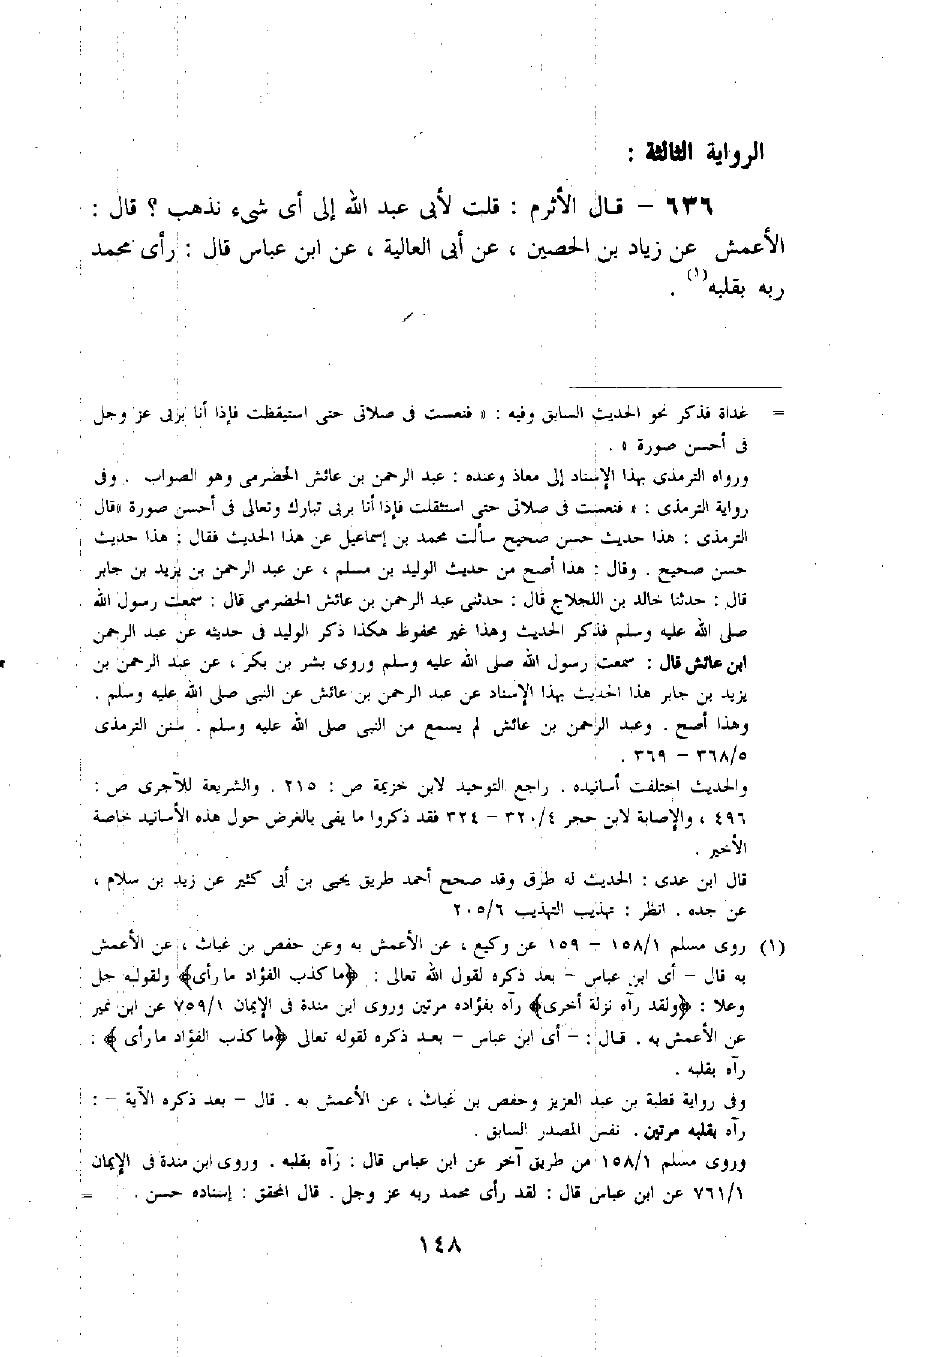 الرواية الثالثة :
٦٣٦ – قال الأثرم : قلت لأبى عبد الله إلى أى شىء نذهب ؟ قال :
الأعمش عن زياد بن الحصين ، عن أبى العالية ، عن ابن عباس قال : رأى محمد
ربه بقلبه(١) .
= غداة فذكر نحو الحديث السابق وفيه : « فنعست فى صلاتى حتى استيقظت فإذا أنا بربى عز وجل
فى أحسن صورة » .
ورواه الترمذى بهذا الإسناد إلى معاذ وعنده : عبد الرحمن بن عائش الحضرمى وهو الصواب . وفى
رواية الترمذى : « فنعست فى صلاتى حتى استثقلت فإذا أنا بربى تبارك وتعالى فى أحسن صورة «قال
الترمذى : هذا حديث حسن صحيح سألت محمد بن إسماعيل عن هذا الحديث فقال : هذا حديث
حسن صحيح . وقال : هذا أصح من حديث الوليد بن مسلم ، عن عبد الرحمن بن يزيد بن جابر
قال : حدثنا خالد بن اللجلاج قال : حدثنى عبد الرحمن بن عائش الحضرمى قال : سمعت رسول الله
صلى الله عليه وسلم فذكر الحديث وهذا غير محفوظ هكذا ذكر الوليد فى حديثه عن عبد الرحمن
ابن عائش قال : سمعت رسول الله صلى الله عليه وسلم وروى بشر بن بكر ، عن عبد الرحمن بن
يزيد بن جابر هذا الحديث بهذا الإسناد عن عبد الرحمن بن عائش عن النبى صلى الله عليه وسلم .
وهذا أصح . وعبد الرحمن بن عائش لم يسمع من النبى صلى الله عليه وسلم . سنن الترمذى
٣٦٨/٥ – ٣٦٩ .
والحديث اختلفت أسانيده . راجع التوحيد لابن خزيمة ص : ٢١٥ . والشريعة للآجرى ص :
٤٩٦ ، والإصابة لابن حجر ٣٢٠/٤ – ٣٢٤ فقد ذكروا ما يفى بالغرض حول هذه الأسانيد خاصة
الأخير .
قال ابن عدى : الحديث له طرق وقد صحح أحمد طريق يحيى بن أبى كثير عن زيد بن سلام ،
عن جده . انظر : تهذيب التهذيب ٢٠٥/٦
(١) روى مسلم ١٥٨/١ – ١٥٩ عن وكيع ، عن الأعمش به وعن حفص بن غياث ، عن الأعمش
به قال – أى ابن عباس – بعد ذكره لقول الله تعالى : ﴿ما كذب الفؤاد ما رأى﴾ ولقوله جل
وعلا : ﴿ولقد رآه نزلة أخرى﴾ رآه بفؤاده مرتين وروى ابن مندة فى الإيمان ٧٥٩/١ عن ابن نمير
عن الأعمش به . قال : – أى ابن عباس – بعد ذكره لقوله تعالى ﴿ما كذب الفؤاد ما رأى ﴾ :
رآه بقلبه .
وفى رواية قطبة بن عبد العزيز وحفص بن غياث ، عن الأعمش به . قال – بعد ذكره الآية – :
رآه بقلبه مرتين . نفس المصدر السابق .
وروى مسلم ١٥٨/١ من طريق آخر عن ابن عباس قال : رآه بقلبه . وروى ابن مندة فى الإيمان
٧٦١/١ عن ابن عباس قال : لقد رأى محمد ربه عز وجل . قال المحقق : إسناده حسن . =
١٤٨